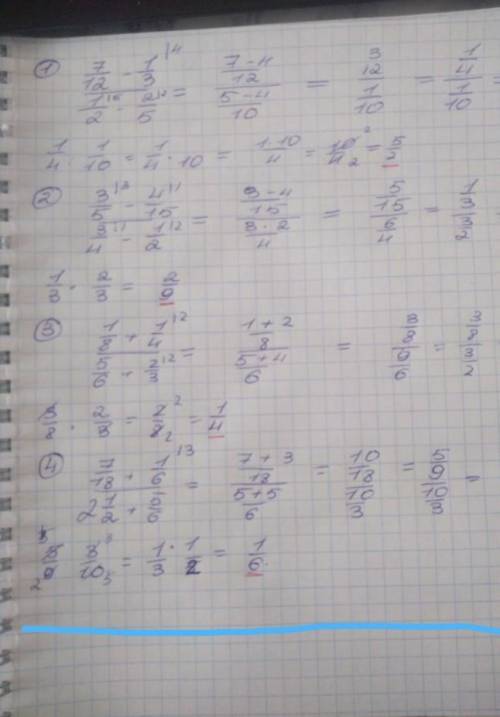 1) (7/12 - 1/3 |4) / (1/2 |5 - 2/5 |2) = ((7-4)/12) / ((5-4)/10) = (3/12) / (1/10) = (1/4) / (1/10) =
1/4 : 1/10 = 1/4 · 10 = 1·10/4 = 10/4 = 5/2
2) (3/5 |3 - 4/15 |1) / (3/4 |1 - 1/2 |2) = ((9-4)/15) / ((3·2)/4) = (5/15) / (6/4) = (1/3) / (3/2)
1/3 · 2/3 = 2/9
3) (1/8 + 1/4 |2) / (5/6 + 2/3 |2) = ((1+2)/8) / ((5+4)/6) = (3/8) / (9/6) = (3/8) / (3/2)
3/8 · 2/3 = 2/8 = 1/4
4) (7/18 + 1/6 |3) / (2 1/2 + 5/6) = ((7+3)/18) / ((5+5)/6) = (10/18) / (10/3) = (5/9) / (10/3) =
5/9 · 3/10 = 1/3 · 1/2 = 1/6